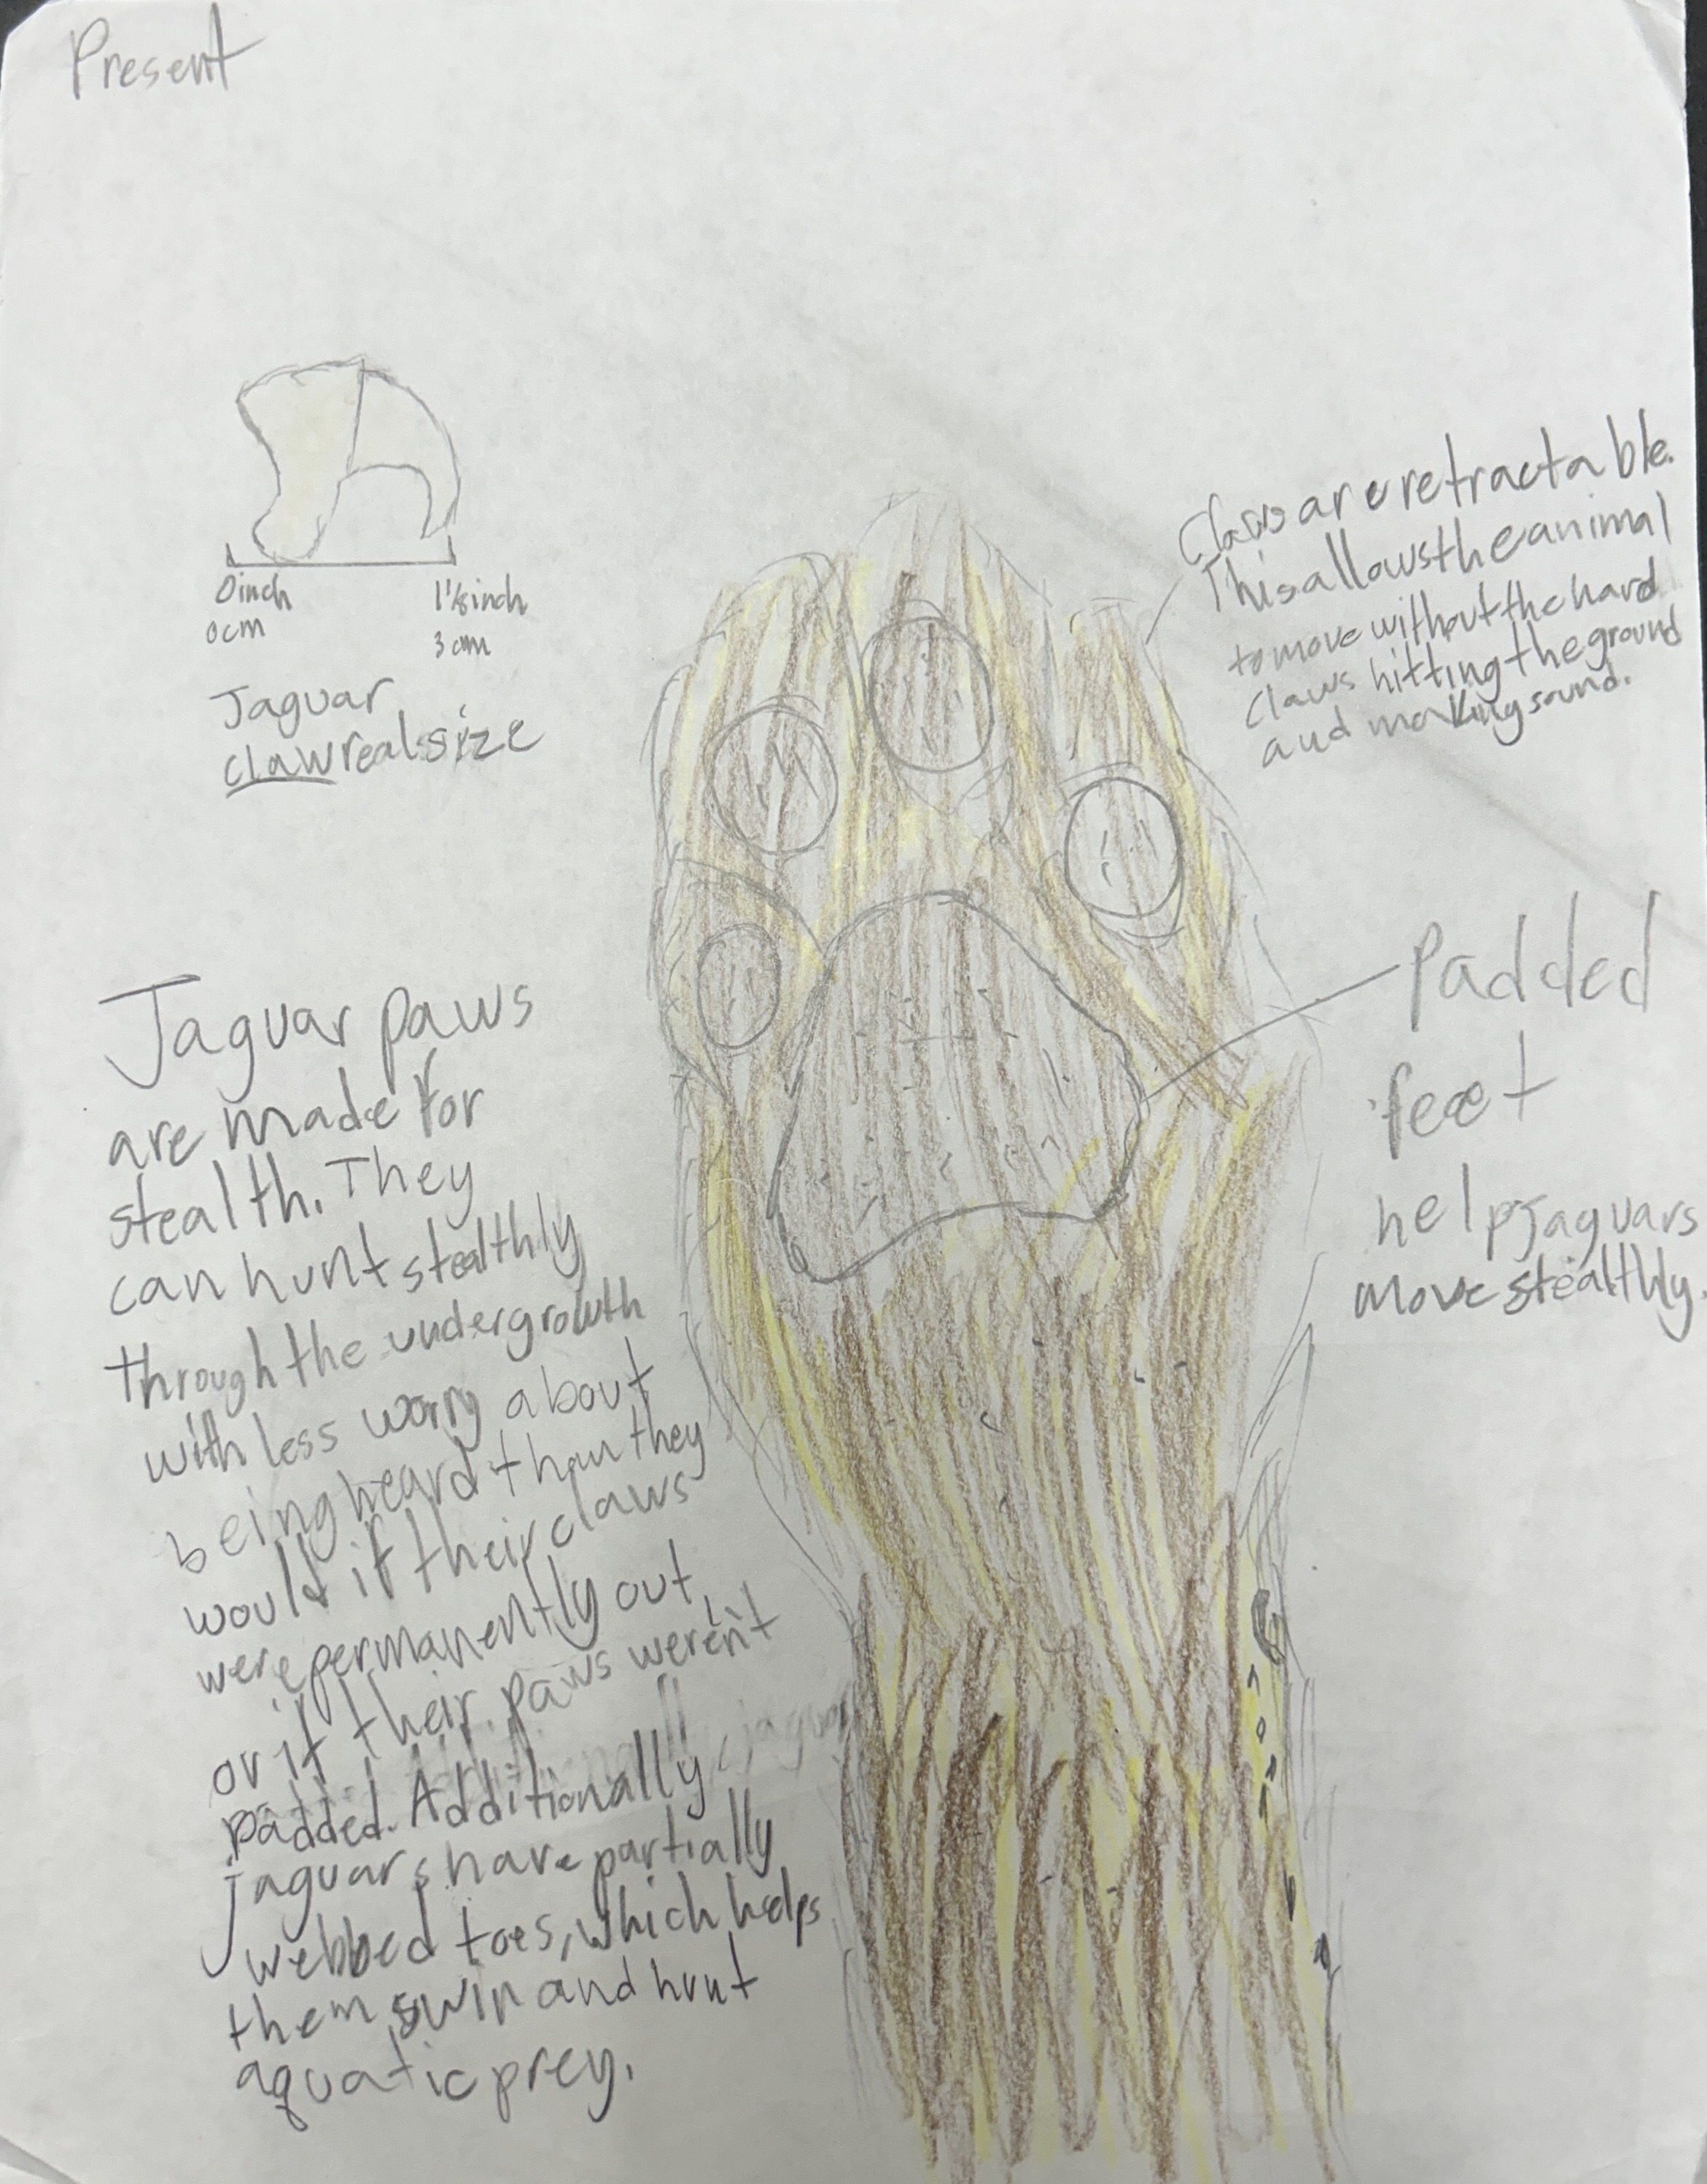 Present
0 inch
0 cm
1 1/8 inch
3 cm
Jaguar
claw real size
Claws are retractable.
This allows the animal
to move without the hard
claws hitting the ground
and making sound.
Padded
feet
help jaguars
move stealthly.
Jaguar paws
are made for
stealth. They
can hunt stealthly
through the undergrowth
with less worry about
being heard than they
would if their claws
were permanently out,
or if their paws weren't
padded. Additionally,
jaguars have partially
webbed toes, which helps
them swim and hunt
aquatic prey.